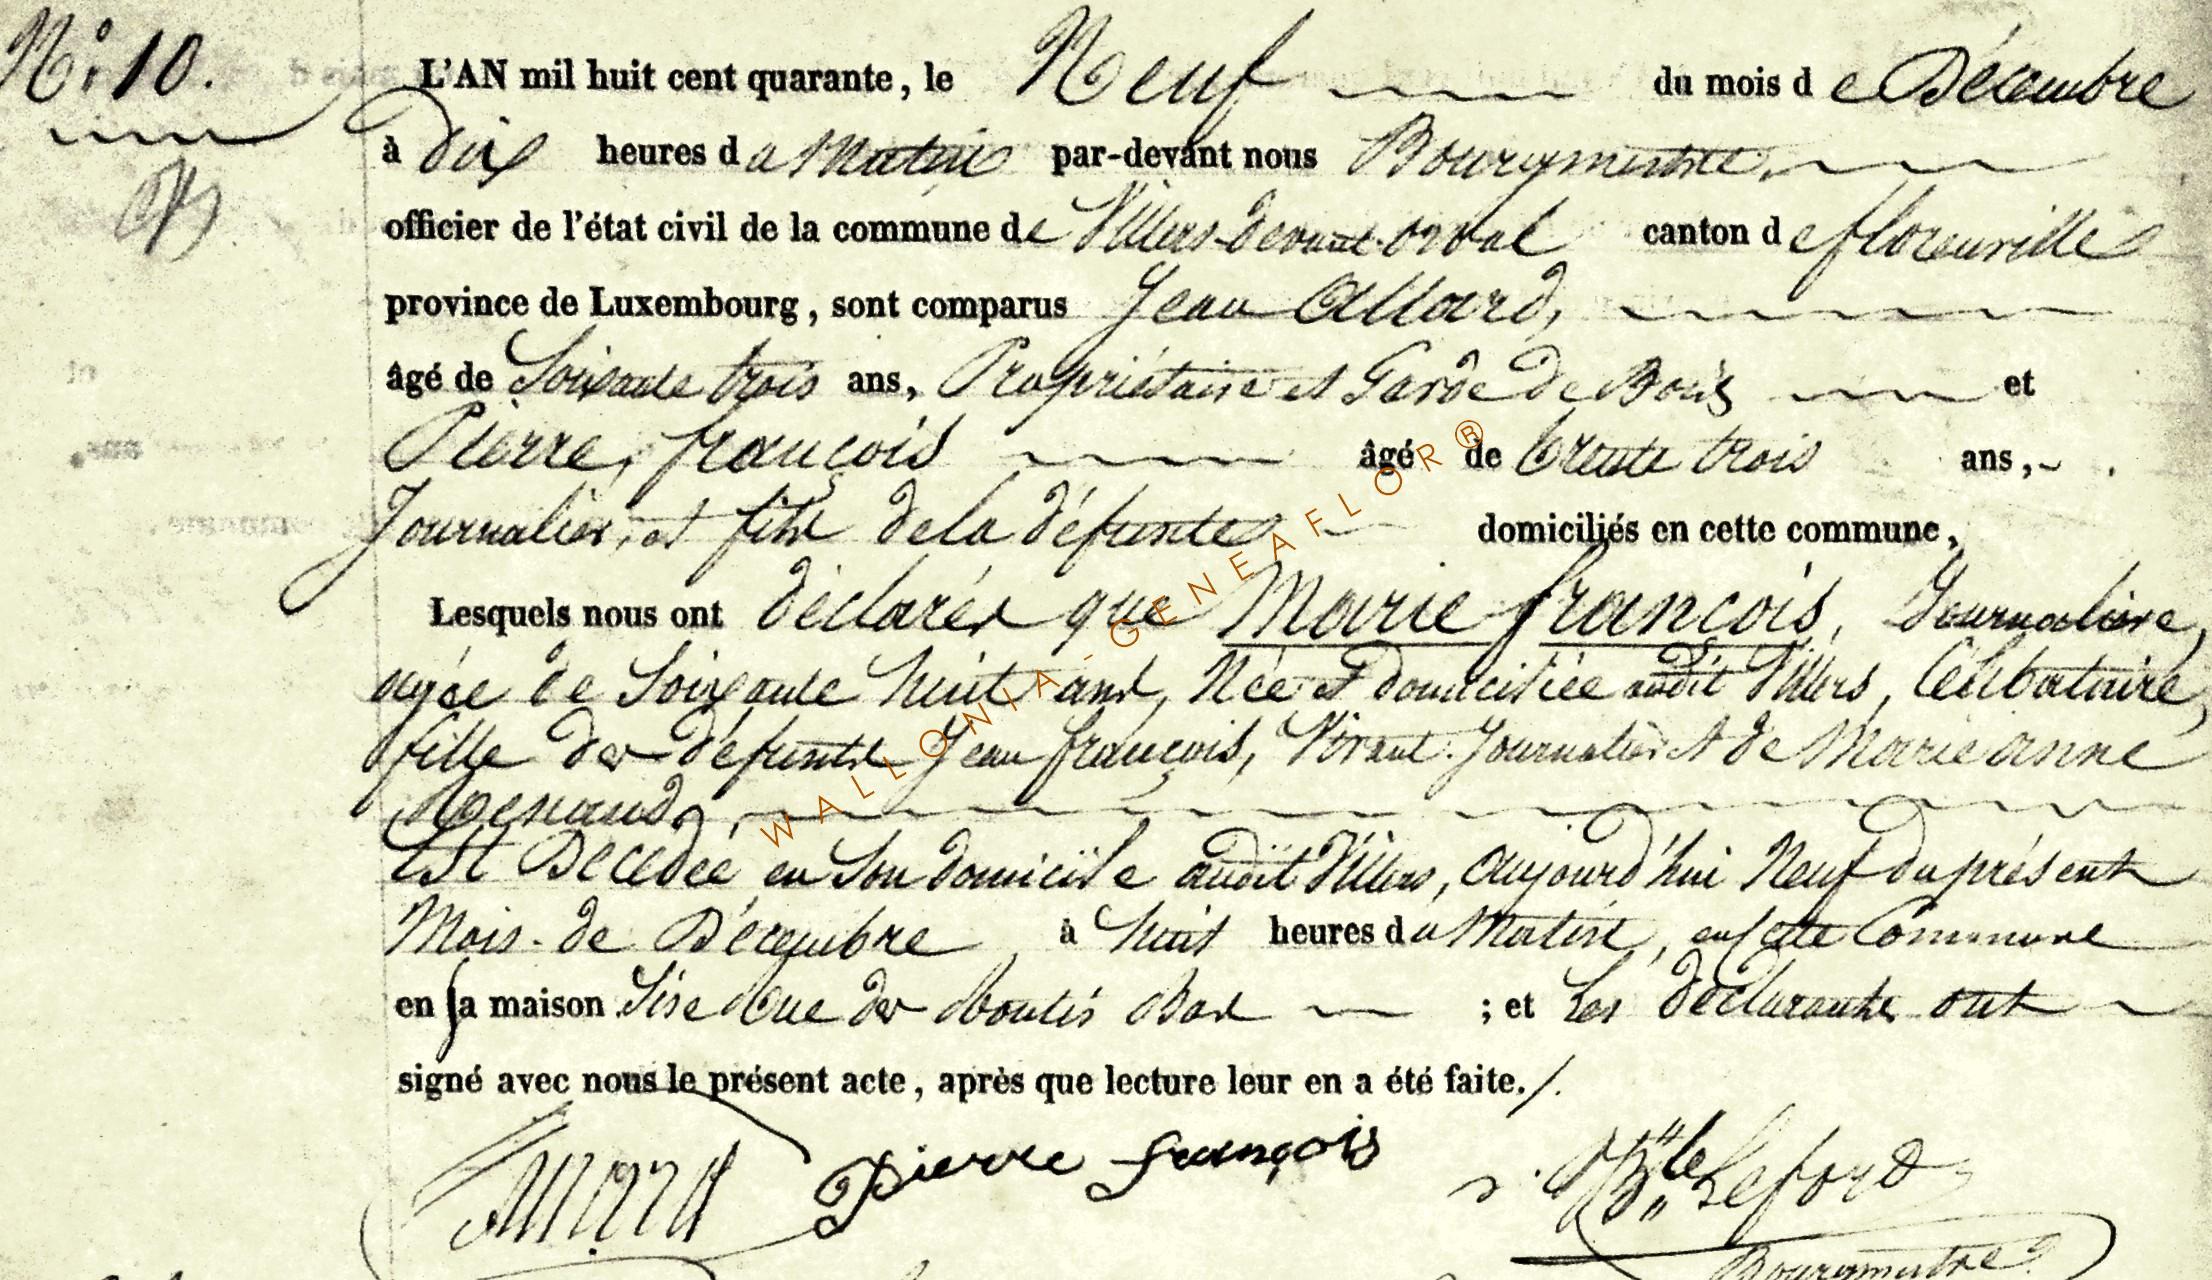 N° 10.
L'AN mil huit cent quarante, le Neuf du mois de Décembre
à dix heures du Matin par-devant nous Bourgmestre,
officier de l'état civil de la commune de Villers-devant-orval canton de florenville
province de Luxembourg, sont comparus Jean Allard,
âgé de Soixante trois ans, Propriétaire et Garde de Bois et
Pierre, françois âgé de trente trois ans,
Journalier, et fils de la défunte domiciliés en cette commune,
Lesquels nous ont déclarés que Marie françois, Journalière,
agée de Soixante huit ans, Née et domiciliée audit Villers, Célibataire,
fille des défunts Jean françois, Vivant Journalier et de Marie anne
Renaud,
Est Décédée en Son domicile audit Villers, aujourd'hui Neuf du présent
Mois de Décembre à huit heures du Matin, en cette Commune
en sa maison Sise Rue des Bas ; et Les déclarants ont
signé avec nous le présent acte, après que lecture leur en a été faite./.
Pierre françois
Bourgmestre
WALLONIA-GENEAFLOR ®